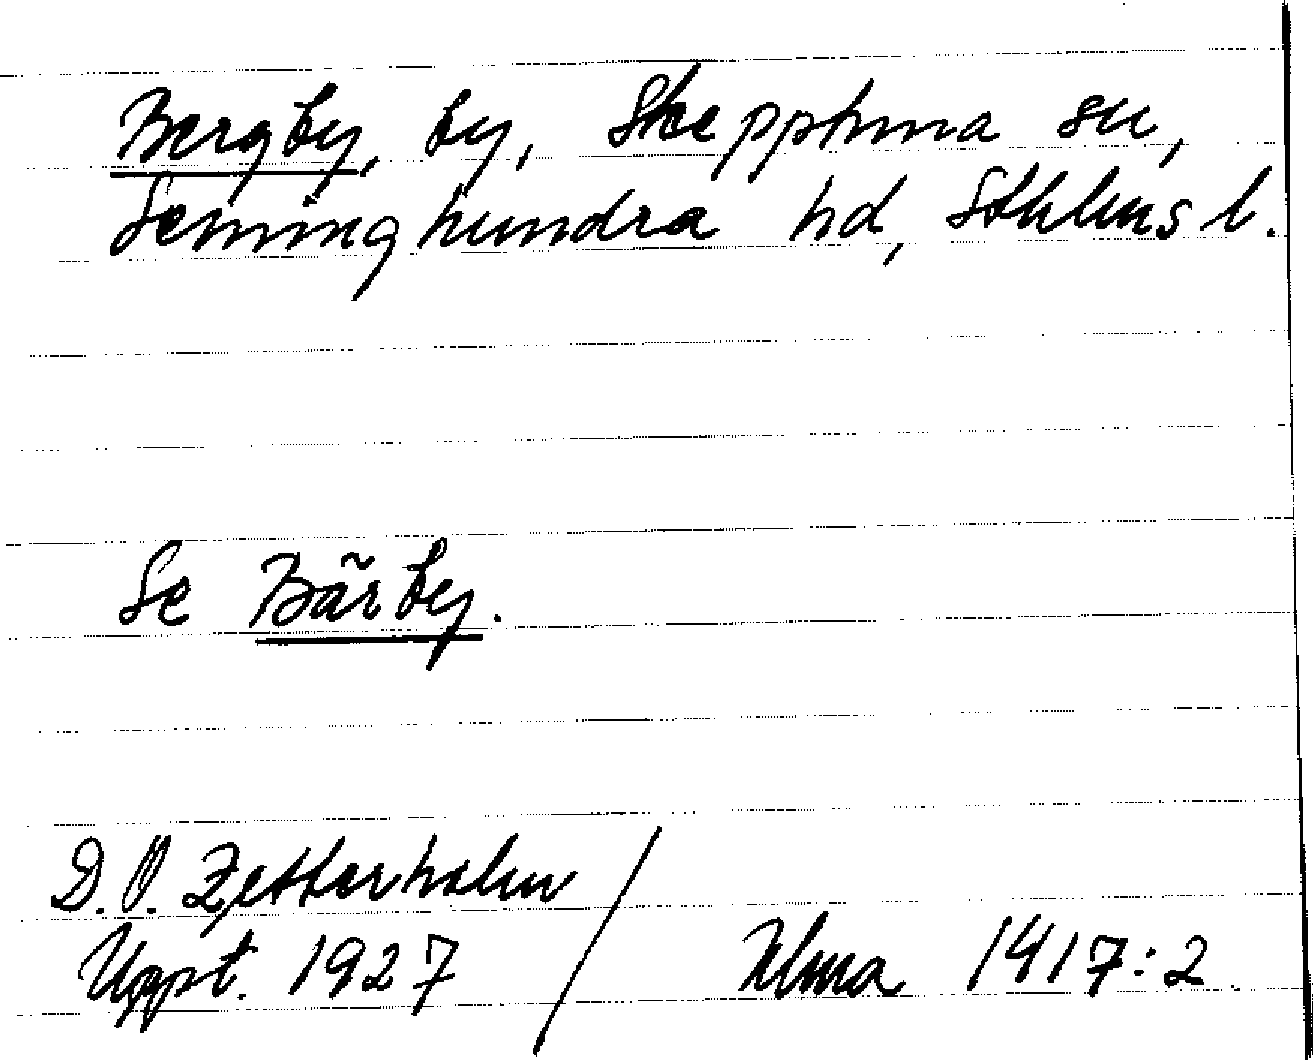 Bergby, by, Skepptuna sn,
Seminghundra hd, Sthlms l.
Se Bãrby.
D.O. Zetterholm /
Uppt. 1927
Ulma 1417:2